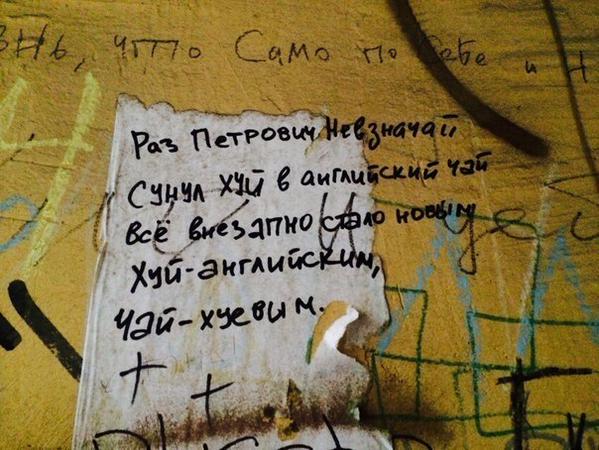 знь, что само по себе и н
Раз Петрович невзначай
Сунул хуй в английский чай
Всё внезапно стало новым
Хуй-английским,
Чай-хуевым.